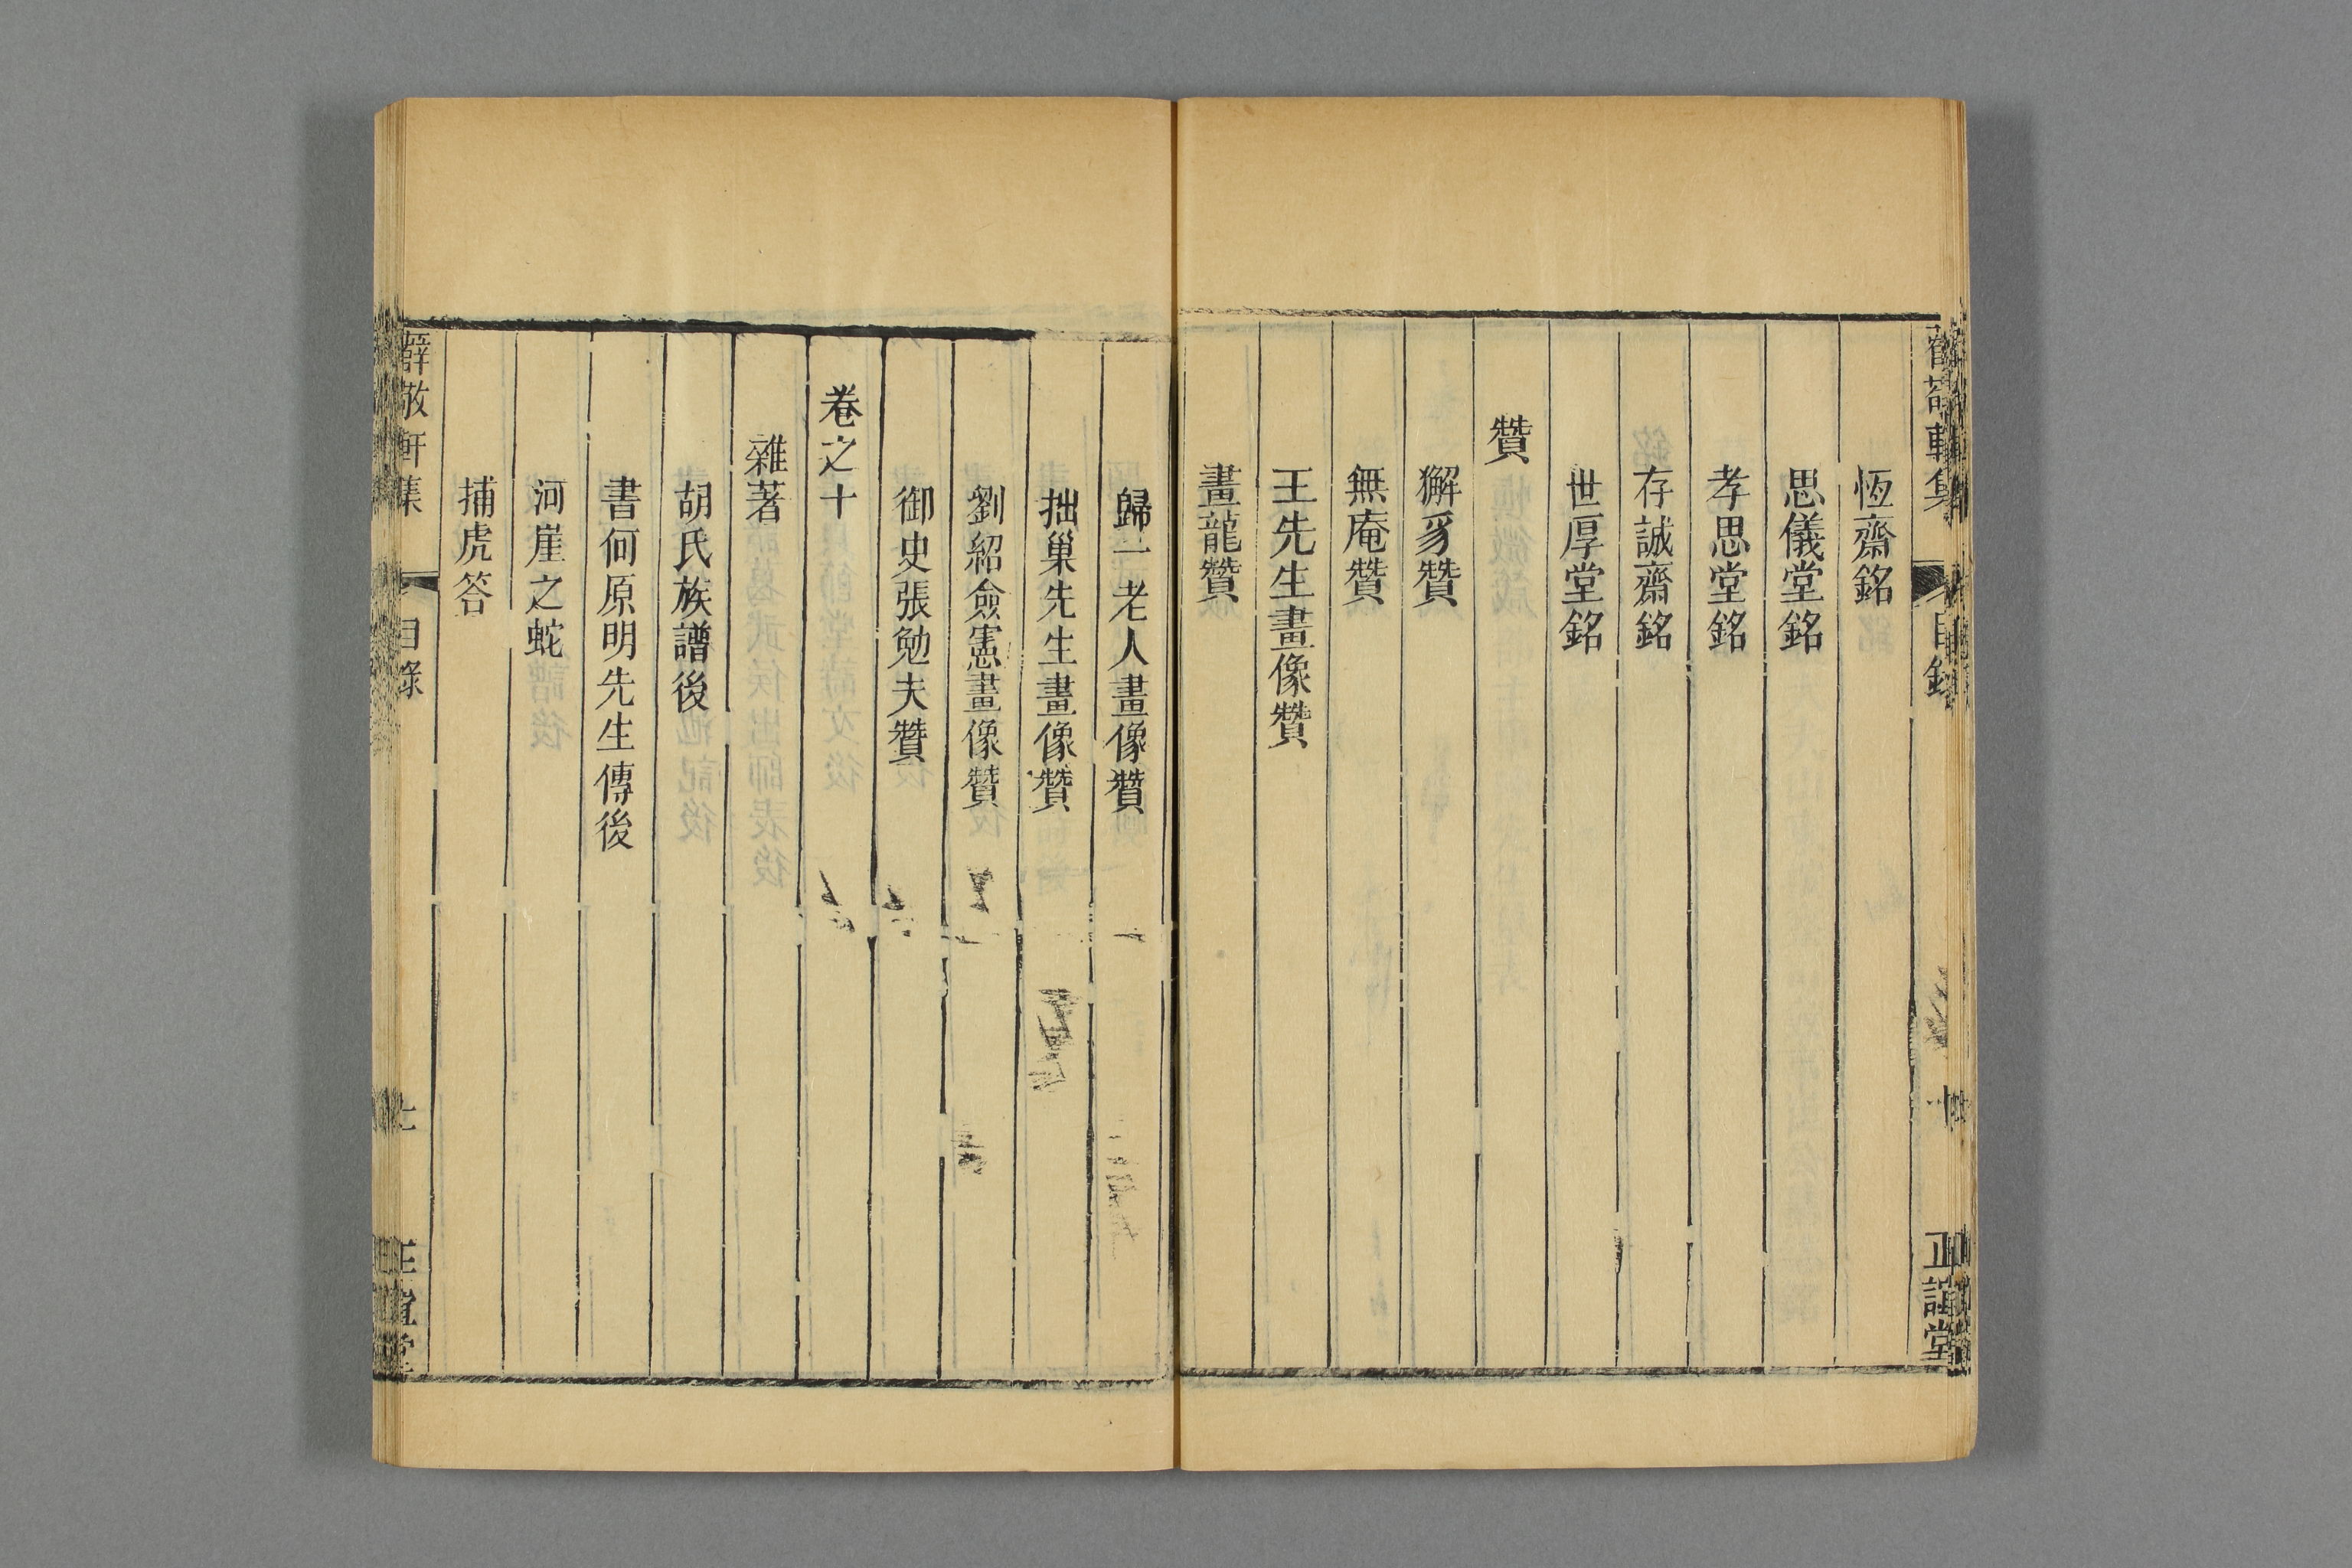 恆齋銘
思儀堂銘
孝思堂銘
存誠齋銘
世厚堂銘
贊
獬豸贊
無庵贊
王先生畫像贊
畫龍贊
歸一老人畫像贊
拙巢先生畫像贊
劉紹僉憲畫像贊
御史張勉夫贊
卷之十
雜著
胡氏族譜後
書何原明先生傳後
河崖之蛇
捕虎答
薛敬軒集
目錄
正誼堂